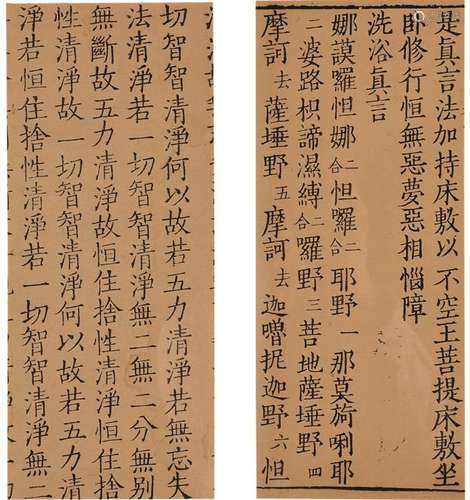 是眞言法加持床敷以不空王菩提床敷坐
卧修行恒無惡夢惡相惱障
洗浴眞言
娜謨羅怛娜二合怛囉二合耶野一那莫旖唎耶
二婆路枳諦濕縛二合囉野三菩地薩埵野四
摩訶去薩埵野五摩訶去迦嚕抳迦野六怛
切智智清淨何以故若五力清淨若無忘失
法清淨若一切智智清淨無二無二分無別
無斷故五力清淨故恒住捨性清淨恒住捨
性清淨故一切智智清淨何以故若五力清
淨若恒住捨性清淨若一切智智清淨無二